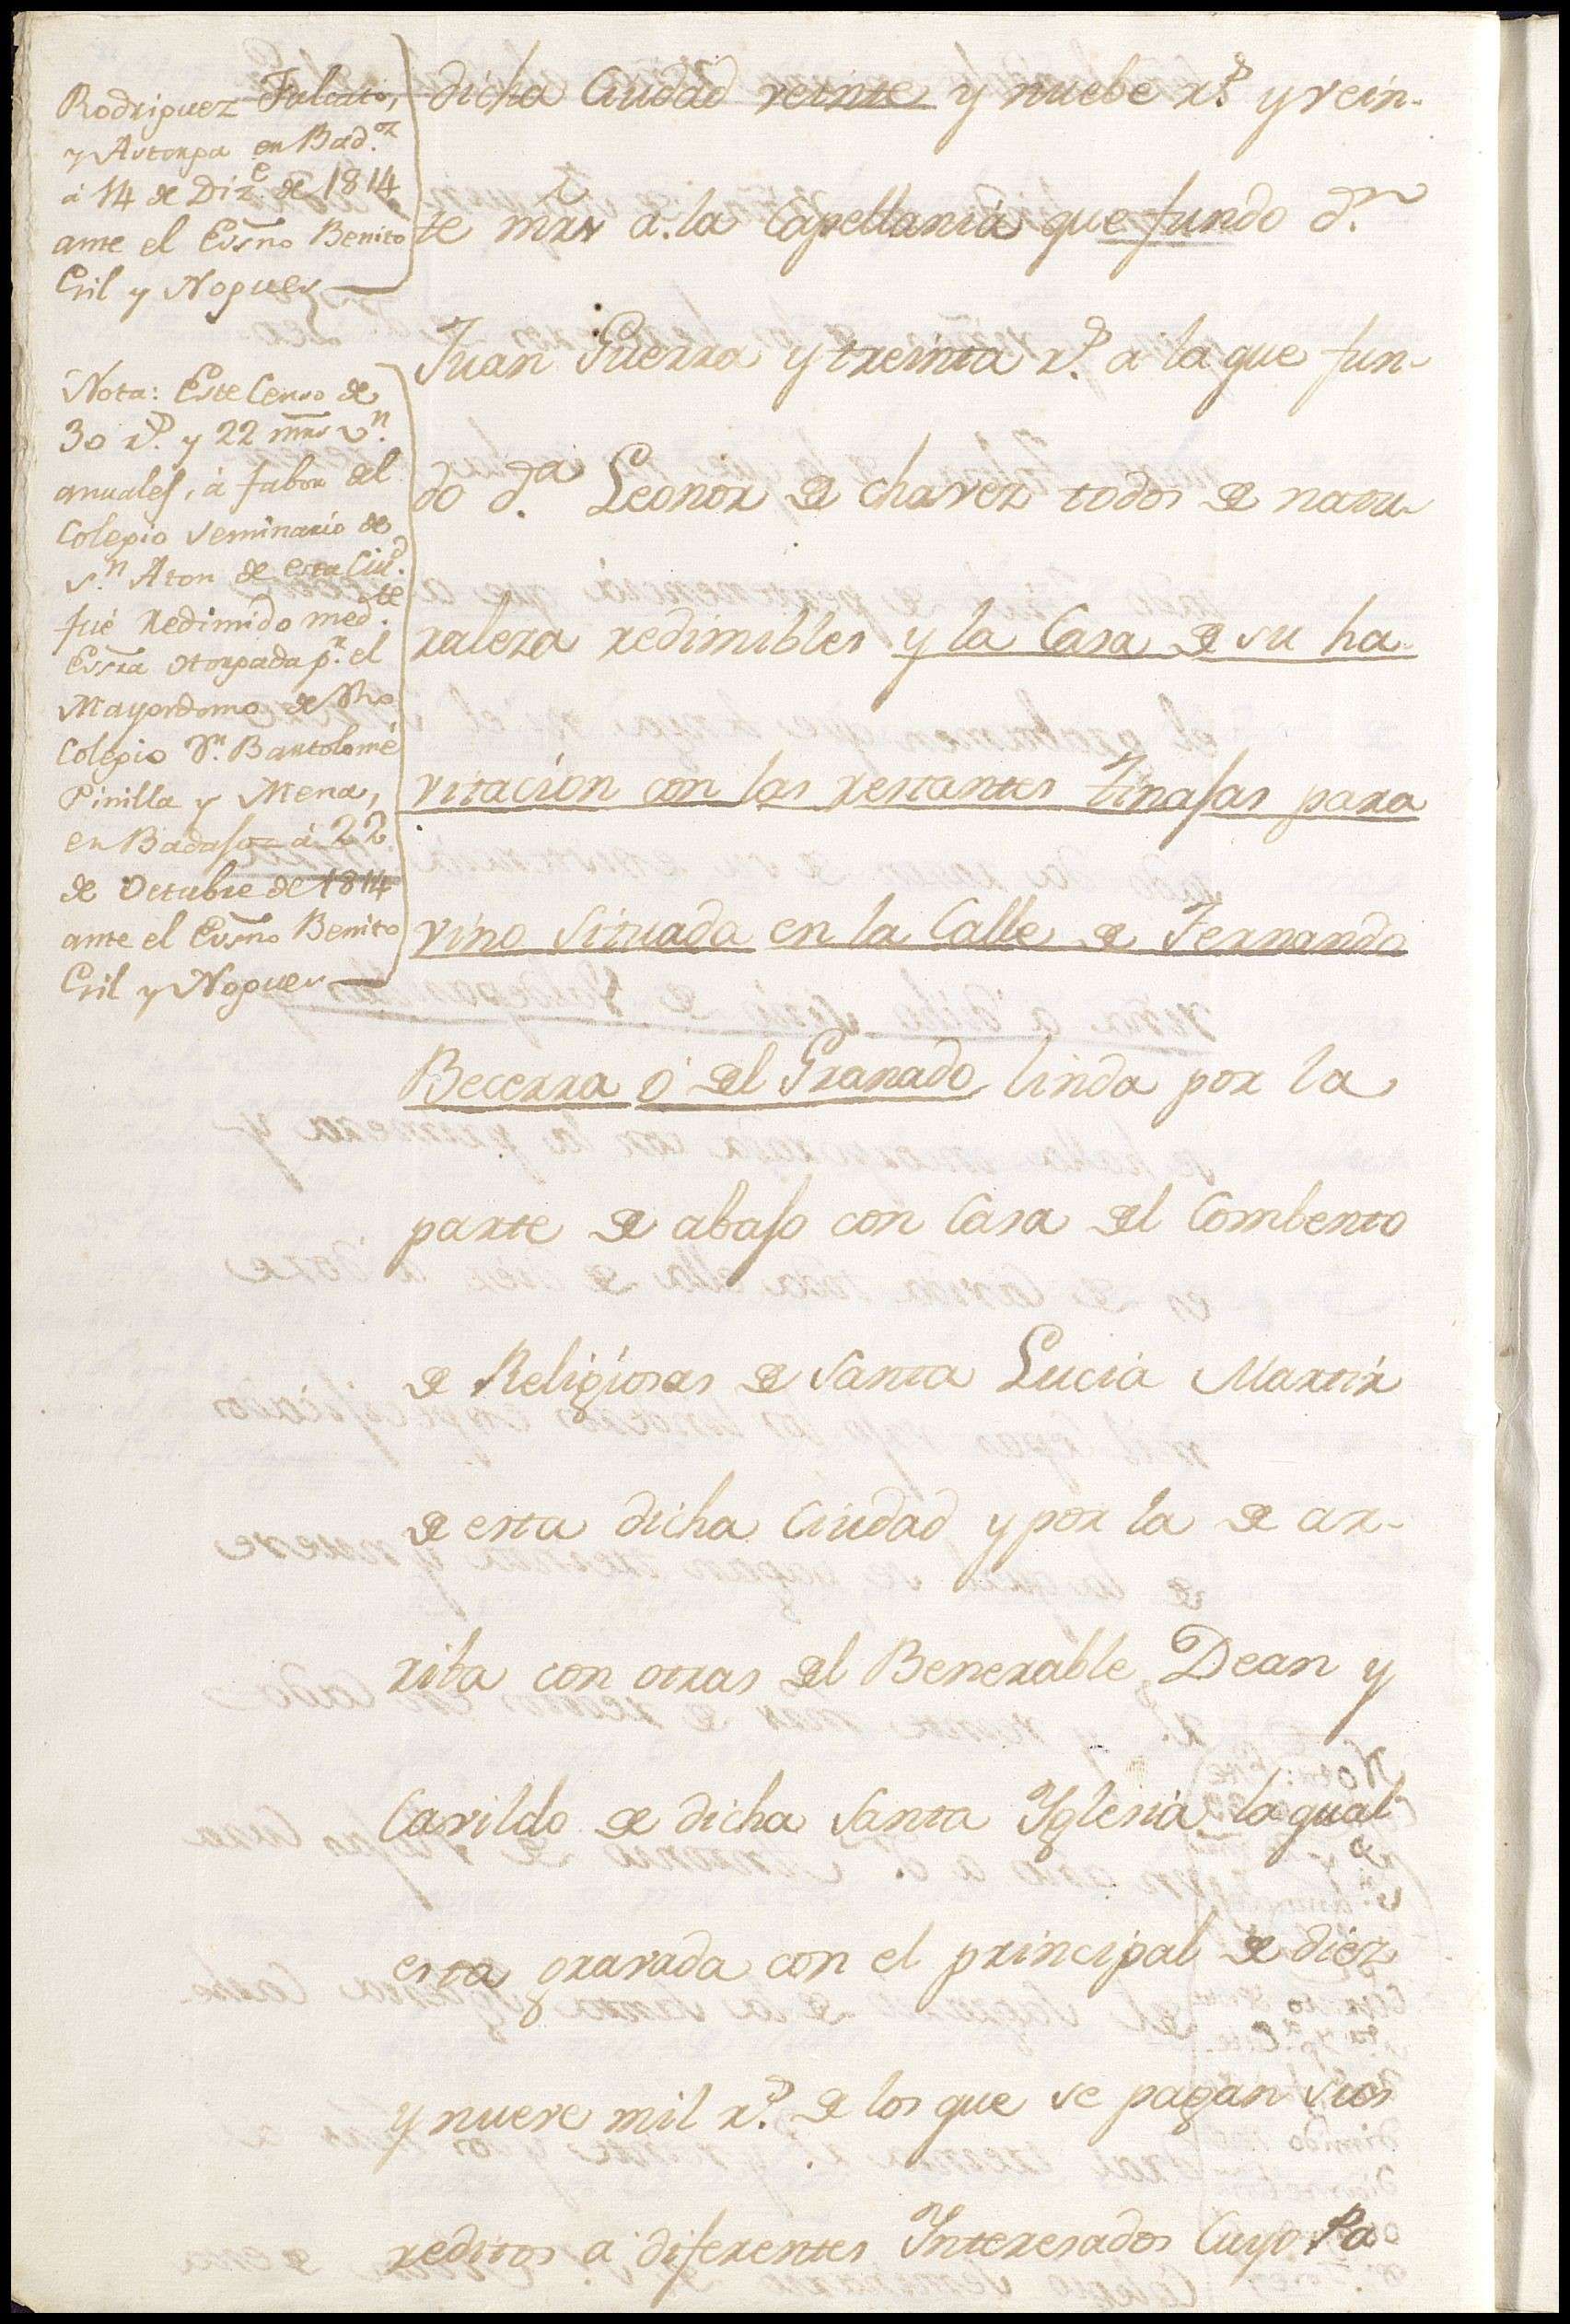 Rodriguez Falcato,
y Astorga en Bad.oz
á 14 de Diz.e de 1814
ante el Essno Benito
Gil y Nogues
Nota: Este Censo de
30 rs. y 22 mrs vn.
anuales, á fabor del
Colegio Seminario de
Sn. Aton de esta Ciud.
fué Redimido medte.
Essra otorgada pr. el
Mayordomo de dho
Colegio Dn. Bartolomé
Pinilla y Mena,
en Badajoz á 22
de Octubre de 1814
ante el Essno Benito
Gil y Nogues
dicha Ciudad veinte y nuebe rs. y vein-
te mrs a la Capellania que fundo Dn.
Juan Guerra y treinta rs. a la que fun-
do Da. Leonor de chavez todos de natu-
raleza redimibles y la Casa de su ha-
vitacion con las restantes tinajas para
vino situada en la Calle de Fernando
Becerra ó del Granado linda por la
parte de abajo con Casa del Combento
de Religiosas de Santa Lucia Martir
de esta dicha Ciudad y por la de ar-
riba con otras del Benerable Dean y
Cavildo de dicha Santa Yglesia la qual
esta gravada con el principal de diez
y nueve mil rs. de los que se pagan sus
reditos a diferentes Interesados Cuyo Pa